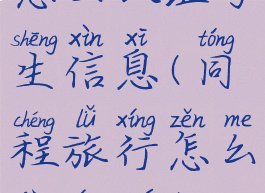 shēng xìn xī tóng
生信息(同
chéng lǚ xíng zěn me
程旅行怎么